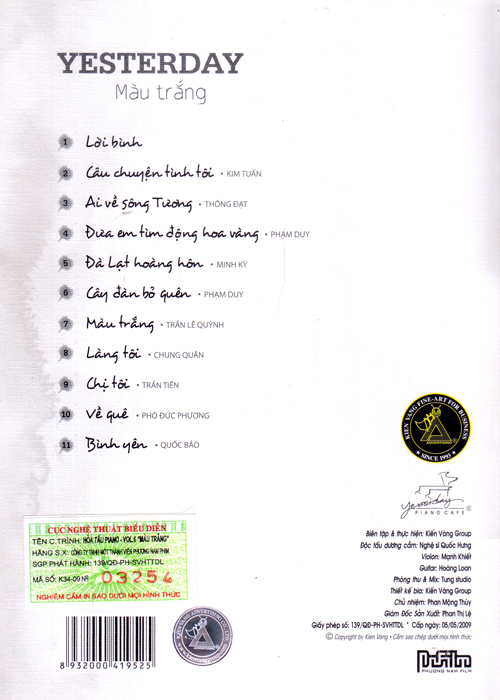 YESTERDAY
Màu trắng
1 Lời bình
2 Câu chuyện tình tôi • KIM TUẤN
3 Ai về sông Tương • THÔNG ĐẠT
4 Đưa em tìm động hoa vàng • PHẠM DUY
5 Đà Lạt hoàng hôn • MINH KỲ
6 Cây đàn bỏ quên • PHẠM DUY
7 Màu trắng • TRẦN LÊ QUỲNH
8 Làng tôi • CHUNG QUÂN
9 Chị tôi • TRẦN TIẾN
10 Về quê • PHÓ ĐỨC PHƯƠNG
11 Bình yên • QUỐC BẢO
KIEN VANG FINE-ART FOR BUSINESS
ADVERTISING
SINCE 1993
yesterday
PIANO CAFE
CỤC NGHỆ THUẬT BIỂU DIỄN
TÊN C.TRÌNH: HÒA TẤU PIANO - VOL.6 "MÀU TRẮNG"
HÃNG S.X: CÔNG TY TNHH MỘT THÀNH VIÊN PHƯƠNG NAM PHIM
SGP PHÁT HÀNH: 139/QĐ-PH-SVHTTDL
MÃ SỐ: K34-09 Nº 03254
NGHIÊM CẤM IN SAO DƯỚI MỌI HÌNH THỨC
Biên tập & thực hiện: Kiến Vàng Group
Độc tấu dương cầm: Nghệ sĩ Quốc Hưng
Violon: Mạnh Khiết
Guitar: Hoàng Loan
Phòng thu & Mix: Tung studio
Thiết kế bìa: Kiến Vàng Group
Chủ nhiệm: Phan Mộng Thúy
Giám Đốc Sản Xuất: Phan Thị Lệ
Giấy phép số: 139/QĐ-PH-SVHTTDL • Cấp ngày: 05/05/2009
© Copyright by Kien Vang • Cấm sao chép dưới mọi hình thức
8 932000 419525
PHUONG NAM FILM